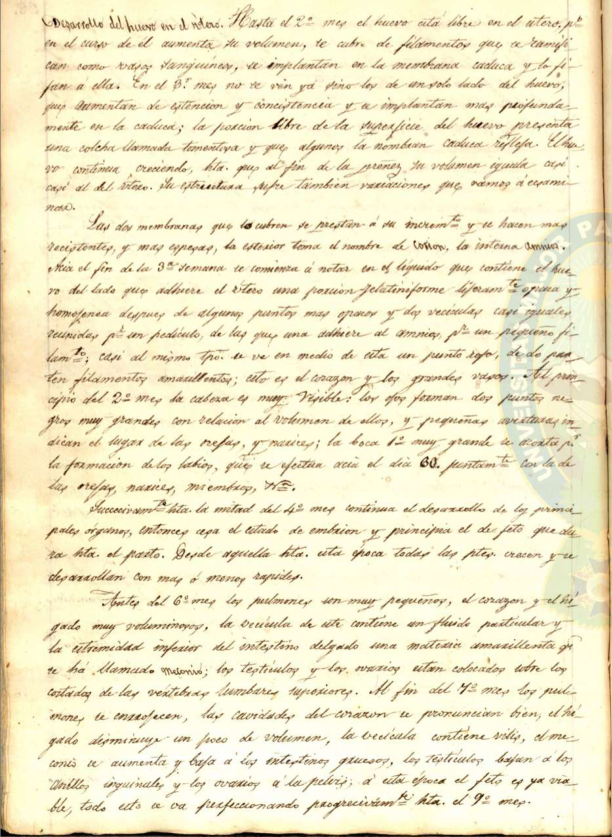 Desarrollo del huevo en el utero. Hasta el 2º mes el huevo está libre en el utero, pº
en el curso de el aumenta su volumen, se cubre de filamentos que se ramifi
can como vasos sanguineos, se implantan en la membrana caduca y lo fi
jan á ella. En el 3º mes no se ven ya sino los de un solo lado del huevo;
que aumentan de estencion y concistencia y se implantan mas profunda
mente en la caduca; la porcion libre de la superficie del huevo presenta
una colcha llamada tomentosa y que algunos la nombran caduca refleja. El hue
vo continua, creciendo, hta. que al fin de la preñez su volumen iguala casi
casi al del utero. Su estructura sufre tambien variaciones que vamos á ecsami
nar.
Las dos membranas que lo cubren se prestan á su increm.to y se hacen mas
recistentes, y mas espesas, la esterior toma el nombre de Corion, la interna amnios.
Acia el fin de la 3ª semana se comienza á notar en el liquido que contiene el hue
vo del lado que adhiere el utero una porcion gelatiniforme lijeram.te opaca y
homojenea despues de algunos puntos mas opacos y dos vecículas casi iguales
reunidas pr un pedículo, de las que una adhiere al amnios, pr un pequeño fi
lam.to; casi al mismo tpo. se ve en medio de esta un punto rojo, de do par
ten filamentos amarillentos; esto es el corazon y los grandes vasos. Al prin
cipio del 2º mes la cabeza es muy visible: los ojos forman dos puntos ne
gros muy grandes con relacion al volumen de ellos, y pequeñas averturas in
dican el lugar de las orejas, y narices; la boca 1º muy grande se acorta pr
la formacion de los labios, que se efectua acia el dia 60. puntam.te con la de
las orejas, narices, miembros,
Succecivam.te hta la mitad del 4º mes continua el desarrollo de los princi
pales órganos, entonces cesa el estado de embrion y principia el de feto que du
ra hta. el parto. Desde aquella hta. esta época todas las ptes. crecen y se
desarrollan con mas ó menos rapides.
Antes del 6º mes los pulmones son muy pequeños, el corazon y el hi
gado muy voluminosos, la vecicula de este contiene un fluido particular y
la estremidad inferior del intestino delgado una materia amarillenta qe
se há llamado meconio; los testículos y los ovarios estan colocados sobre los
costados de las vertebras lumbares superiores. Al fin del 7º mes los pul
mones se enrrojecen, las cavidades del corazon se pronuncian bien, el hi
gado disminuye un poco de volumen, la vecicula contiene vilis, el me
conio se aumenta y baja á los intestinos gruesos, los testículos bajan á los
anillos inguinales y los ovarios á la pelvis; á esta epoca el feto es ya via
ble, todo esto se va perfeccionando progrecivam.te hta. el 9º mes.